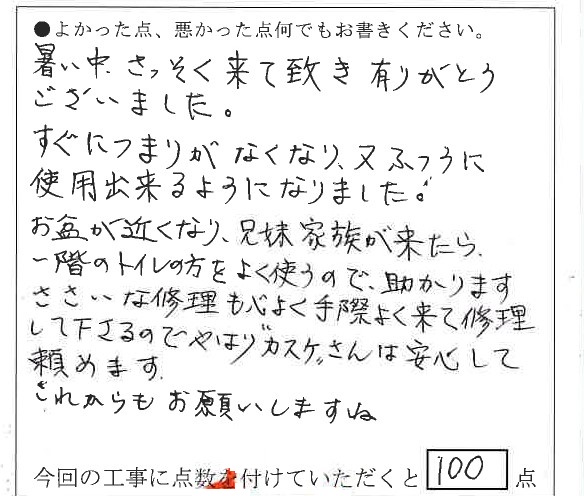 ●よかった点、悪かった点何でもお書きください。
暑い中、さっそく来て致き有りがとう
ございました。
すぐにつまりがなくなり、又ふつうに
使用出来るようになりました。
お盆が近くなり、兄妹家族が来たら、
一階のトイレの方をよく使うので、助かります
ささいな修理も心よく手際よく来て修理
して下さるのでやはり"カスケ"さんは安心して
頼めます。
これからもお願いしますね
今回の工事に点数を付けていただくと 100 点